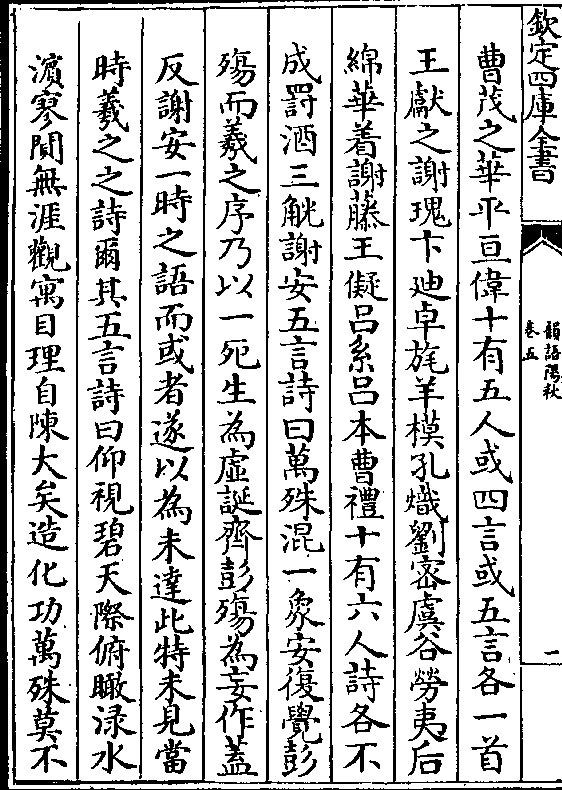 欽定四庫全書
韻語陽秋
卷五
一
曹茂之華平亘偉十有五人或四言或五言各一首
王獻之謝瑰卞迪卓旄羊模孔熾劉密虞谷勞夷后
綿華着謝藤王儗吕系吕本曹禮十有六人詩各不
成罰酒三觥謝安五言詩曰萬殊混一象安復覺彭
殤而羲之序乃以一死生為虚誕齊彭殤為妄作蓋
反謝安一時之語而或者遂以為未達此特未見當
時羲之之詩爾其五言詩曰仰視碧天際俯瞰淥水
濵寥閴無涯觀寓目理自陳大矣造化功萬殊莫不